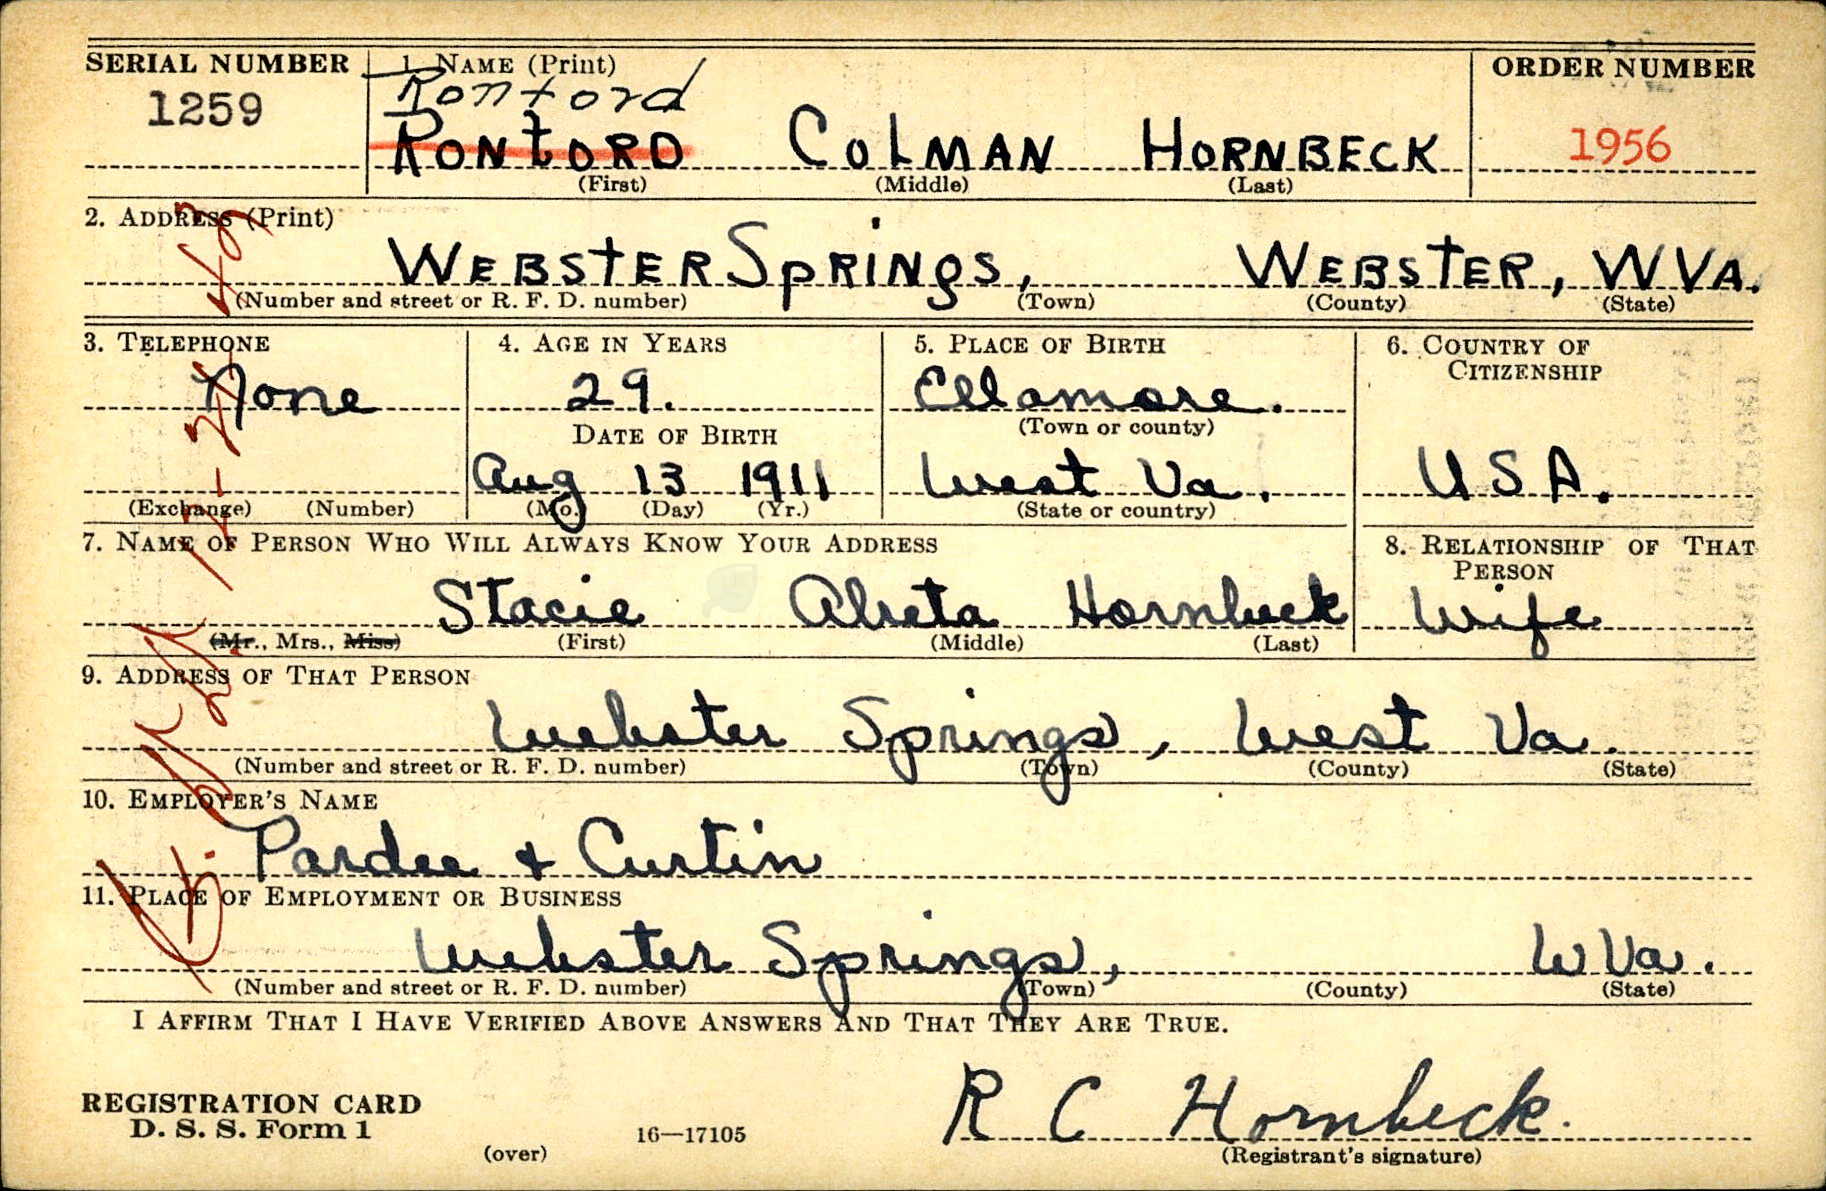 SERIAL NUMBER 1. NAME (Print) ORDER NUMBER
Rontord
1259 RONTORD COLMAN HORNBECK 1956
(First) (Middle) (Last)
2. ADDRESS (Print)
WEBSTER SPRINGS, WEBSTER, W VA.
(Number and street or R. F. D. number) (Town) (County) (State)
3. TELEPHONE 4. AGE IN YEARS 5. PLACE OF BIRTH 6. COUNTRY OF CITIZENSHIP
None 29. Ellamore.
DATE OF BIRTH (Town or county)
Aug 13 1911 West Va. U S A.
(Exchange) (Number) (Mo.) (Day) (Yr.) (State or country)
7. NAME OF PERSON WHO WILL ALWAYS KNOW YOUR ADDRESS 8. RELATIONSHIP OF THAT PERSON
Stacie Alreta Hornbeck Wife
(Mr., Mrs., Miss) (First) (Middle) (Last)
9. ADDRESS OF THAT PERSON
Webster Springs, West Va.
(Number and street or R. F. D. number) (Town) (County) (State)
10. EMPLOYER'S NAME
Pardee + Curtin
11. PLACE OF EMPLOYMENT OR BUSINESS
Webster Springs, W Va.
(Number and street or R. F. D. number) (Town) (County) (State)
I AFFIRM THAT I HAVE VERIFIED ABOVE ANSWERS AND THAT THEY ARE TRUE.
R C Hornbeck.
REGISTRATION CARD
D. S. S. Form 1
(over) 16—17105 (Registrant's signature)